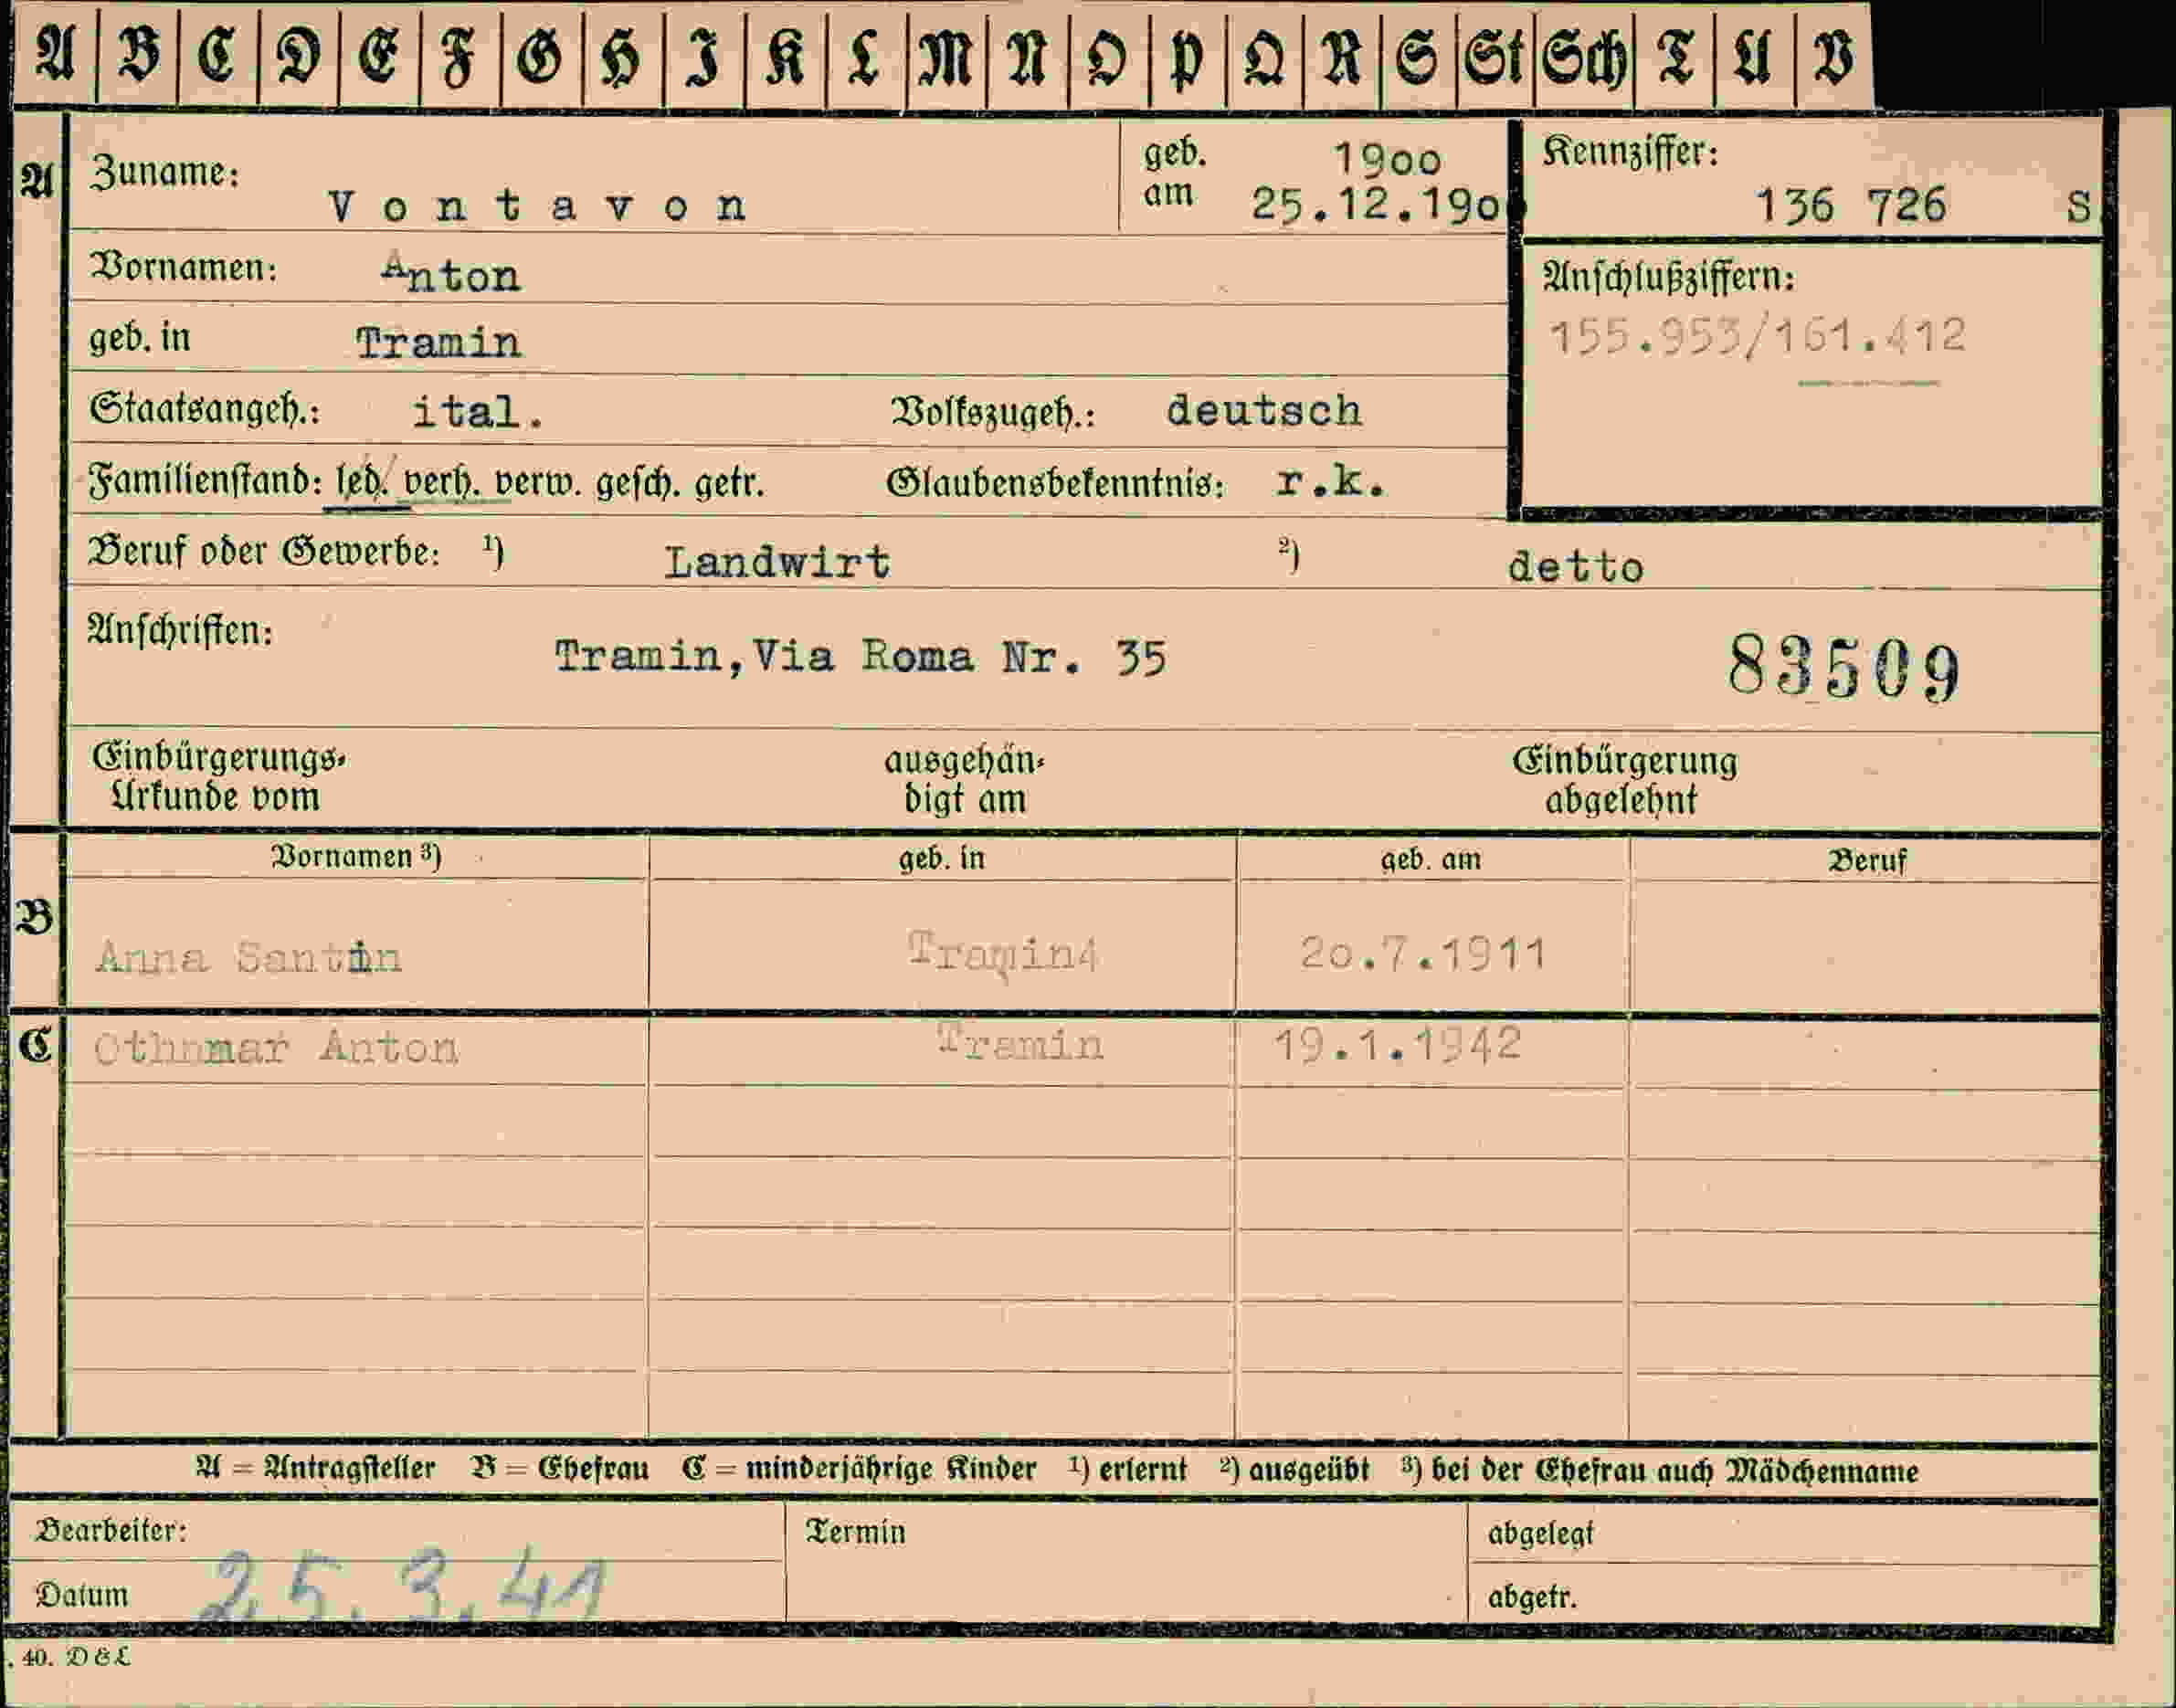 A B C D E F G H I K L M N O P Q R S St Sch T U V
A Zuname: Vontavon geb. am 1900 25.12.190 Kennziffer: 136 726 S
Vornamen: Anton Anschlußziffern:
geb. in Tramin 155.953/161.412
Staatsangeh.: ital. Volkszugeh.: deutsch
Familienstand: led. verh. verw. gesch. getr. Glaubensbekenntnis: r.k.
Beruf oder Gewerbe: 1) Landwirt 2) detto
Anschriften: Tramin, Via Roma Nr. 35 83509
Einbürgerungs- ausgehän- Einbürgerung
Urkunde vom digt am abgelehnt
Vornamen 3) geb. in geb. am Beruf
B Anna Santin Tramin4 20.7.1911
C Othmar Anton Tramin 19.1.1942
A = Antragsteller B = Ehefrau C = minderjährige Kinder 1) erlernt 2) ausgeübt 3) bei der Ehefrau auch Mädchenname
Bearbeiter: Termin abgelegt
Datum 25.3.41 abgetr.
. 40. D & L